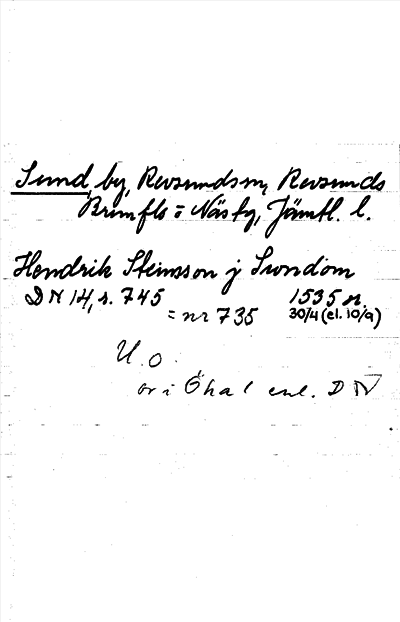 Sund, by, Revsundsn, Revsunds
Brunflo o Näs ty, Jämtl. l.
Hendrik Steinsson j Swndom
DN 14, s. 745 1535 n.
= nr 735 30/4 (el. 10/9)
U. o.
or i Öhal enl. DN